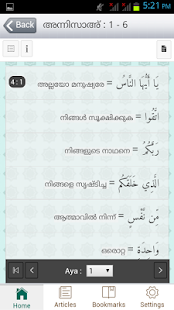 5:21 PM
Back
അന്നിസാഅ് : 1 - 6
4:1
അല്ലയോ മനുഷ്യരേ = يَا أَيُّهَا النَّاسُ
നിങ്ങൾ സൂക്ഷിക്കുക = اتَّقُوا
നിങ്ങളുടെ നാഥനെ = رَبَّكُمُ
നിങ്ങളെ സൃഷ്ടിച്ച = الَّذِي خَلَقَكُم
ആത്മാവിൽ നിന്ന് = مِّن نَّفْسٍ
ഒരൊറ്റ = وَاحِدَةٍ
Aya : 1
Home Articles Bookmarks Settings